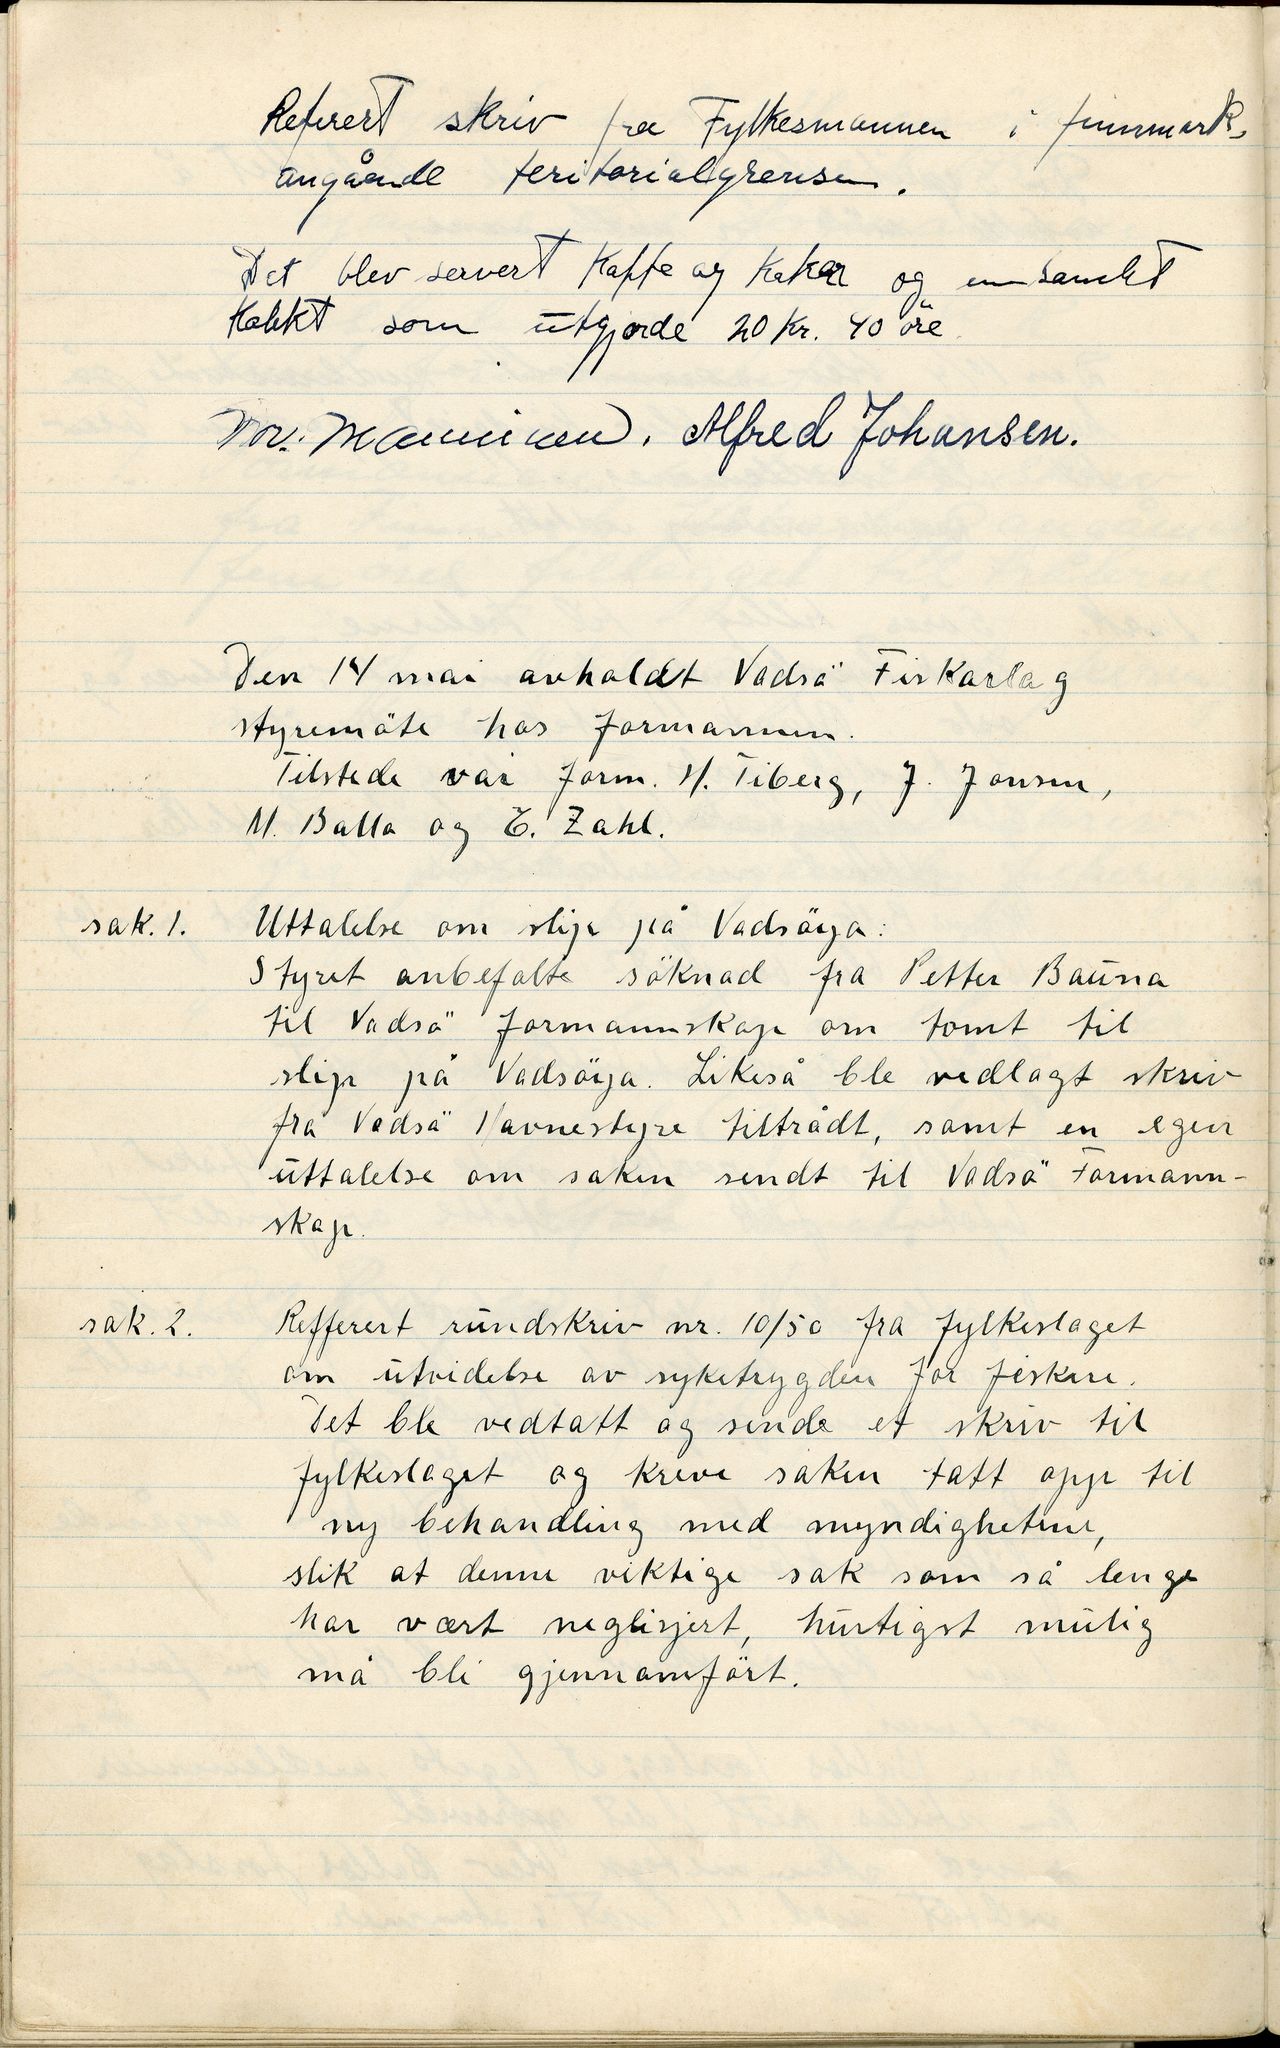 Referert skriv fra Fylkesmannen i finnmark,
angående teritorialgrensen.
Det blev servert Kaffe og Kaker og en samlet
som utgjorde 20 Kr. 40 öre
Alfred Johansen.
Den 14 mai avholdt Vadsö Fiskarlag
styremöte hos formannen.
Tilstede var form. H. Tiberg, J. Jonsen,
M. Balla og E. Zahl.
sak. 1. Uttalelse om slip på Vadsöya:
Styret anbefalte söknad fra Petter Bauna
til Vadsö formannskap om tomt til
slip på Vadsöya. Likeså ble vedlagt skriv
fra Vadsö Havnestyre tiltrådt, samt en egen
uttalelse om saken sendt til Vadsö Formann-
skap.
sak. 2. Refferert rundskriv nr. 10/50 fra fylkeslaget
om utvidelse av syketrygden for fiskere.
Det ble vedtatt og sende et skriv til
fylkeslaget og kreve saken tatt opp til
ny behandling med myndighetene,
slik at denne viktige sak som så lenge
har vært neglisjert, hurtigst mulig
må bli gjennomfört.